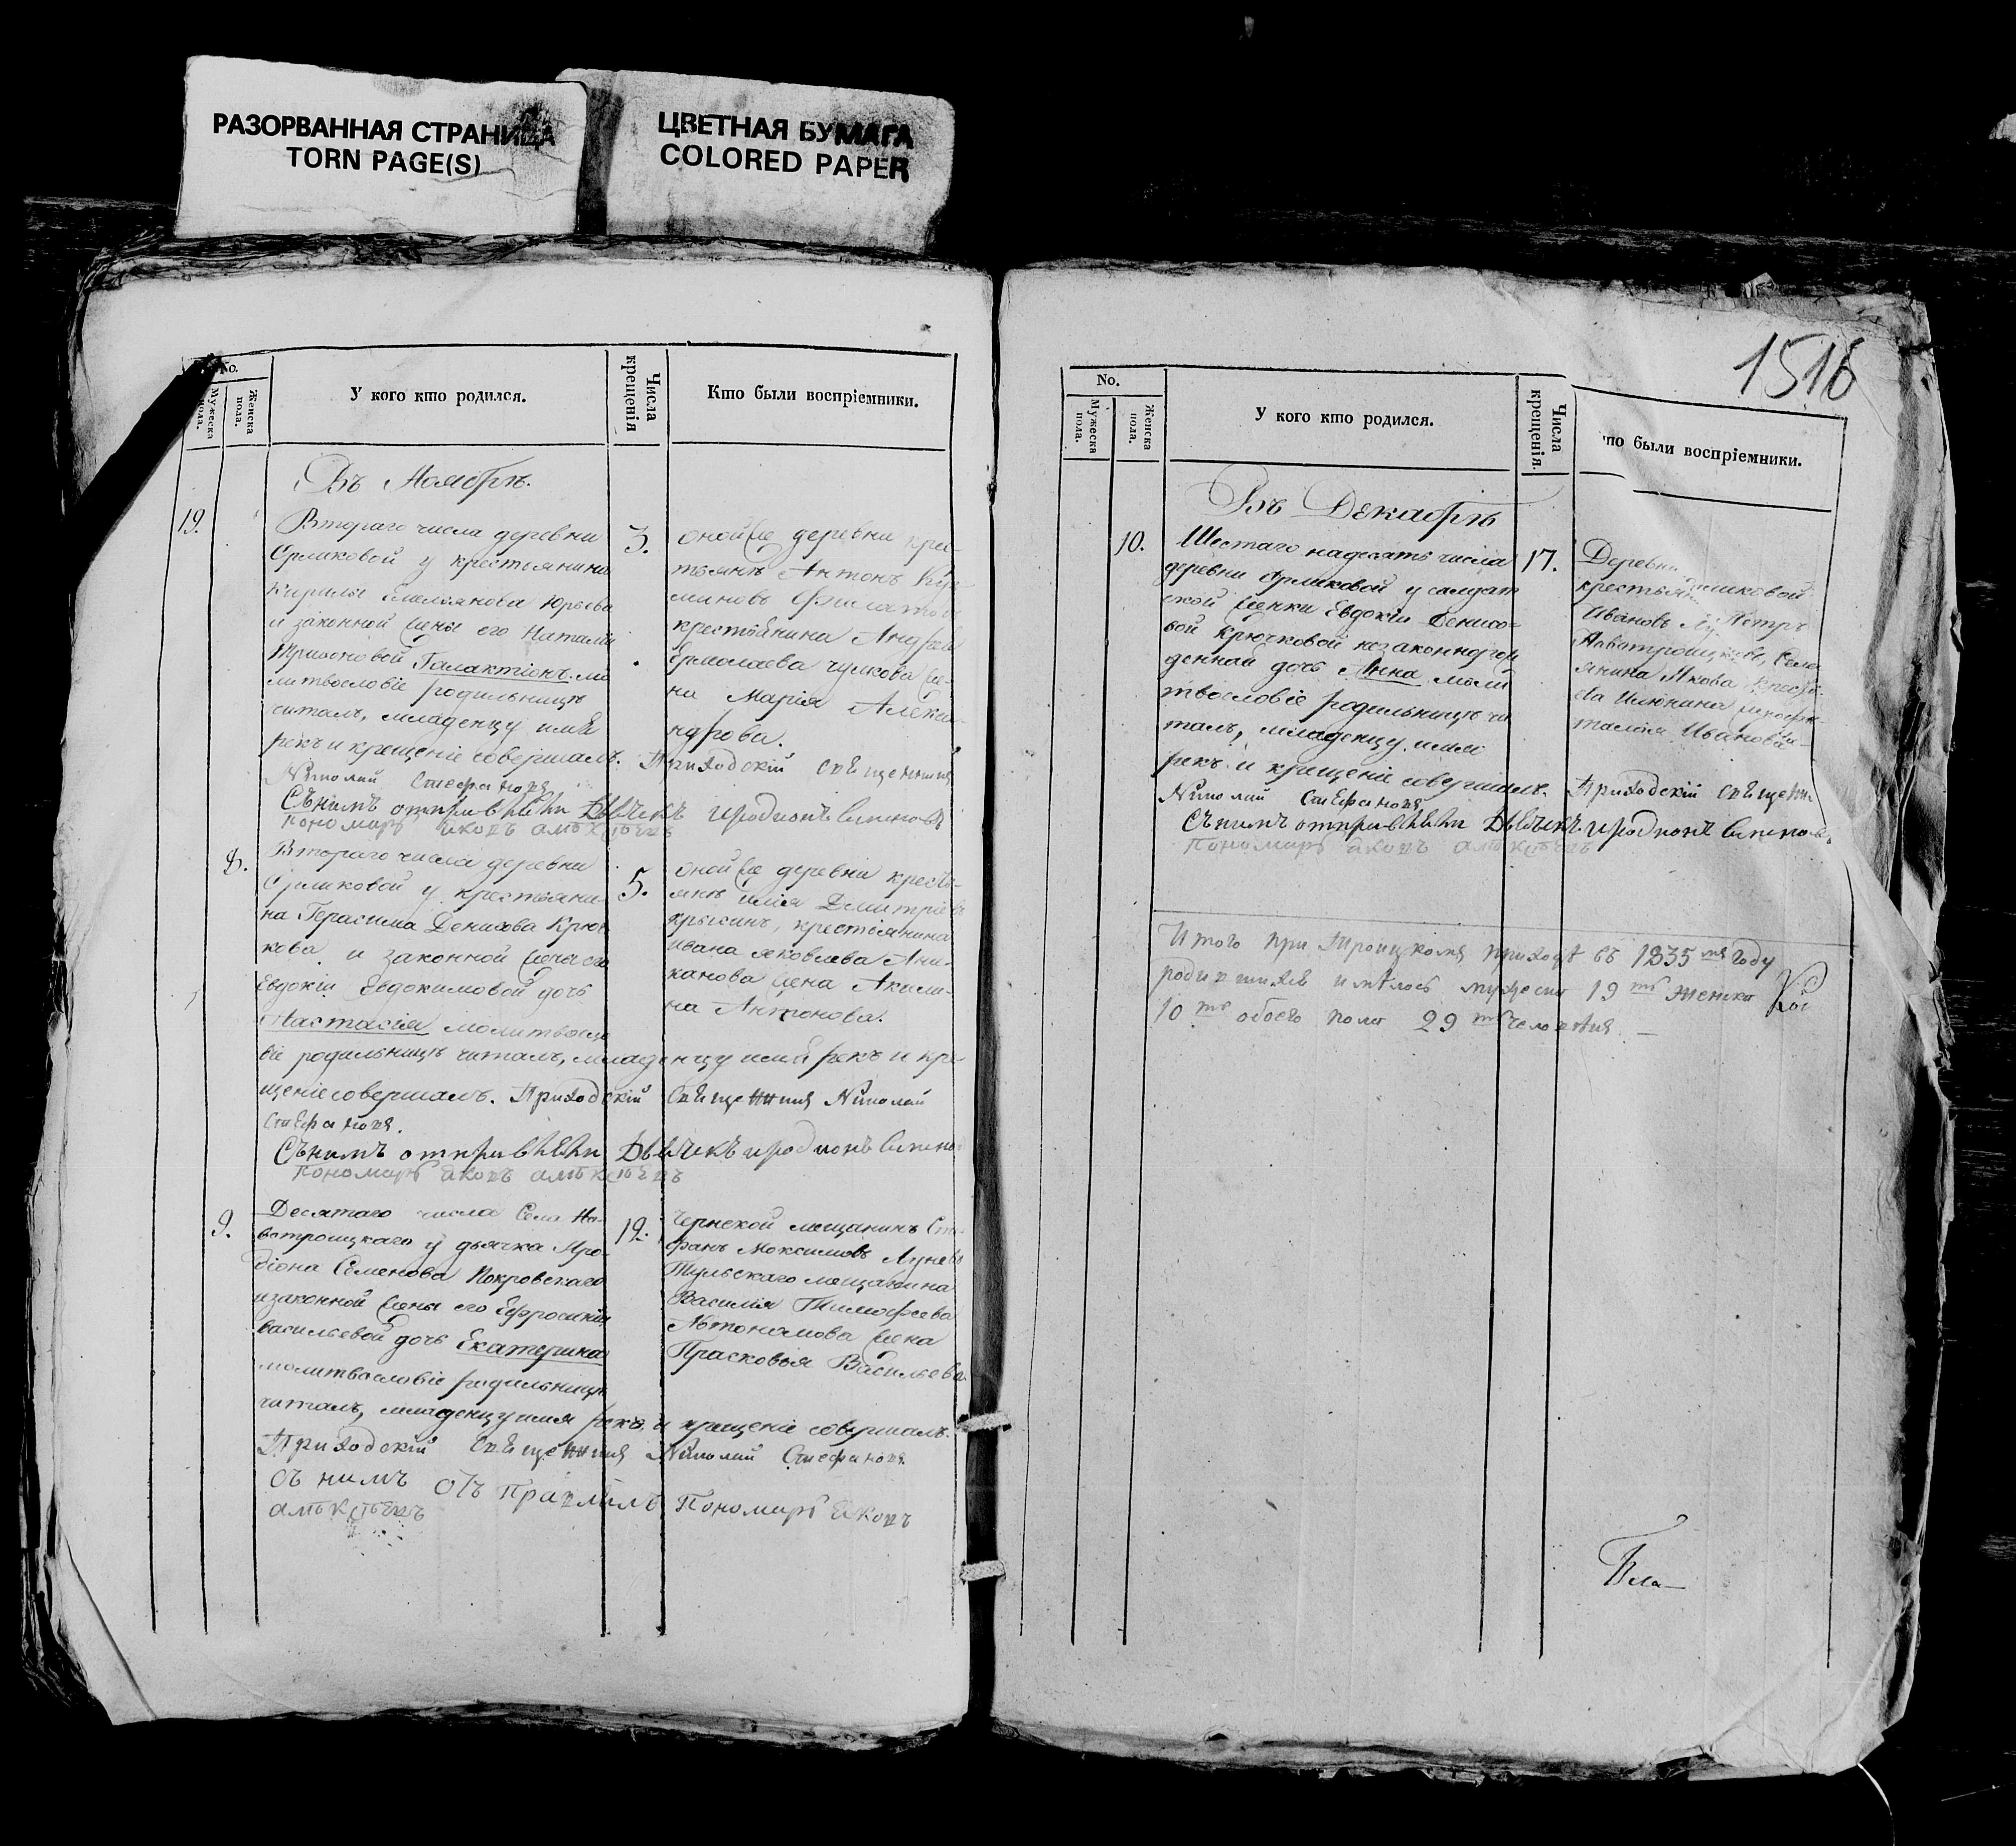 РАЗОРВАННАЯ СТРАНИЦА
TORN PAGE(S)
ЦВЕТНАЯ БУМАГА
COLORED PAPER
No.
Мужеска пола.
Женска пола.
У кого кто родился.
Числа крещенія
Кто были воспріемники.
Въ Ноябрѣ.
19.
Втораго числа деревни
Орликовой у крестьянина
Кирилы Емельянова Юрьева
и законной жены его Наталіи
Галактіонъ мо
литвословіе родильницѣ
читалъ, младенцу имя
рекъ и крещеніе совершалъ. Приходскій священникъ
Николай Стефановъ
Съ нимъ отправляли Дьячекъ Иродионъ Семеновъ
пономарь Яковъ Алексѣевъ
3.
оной же деревни крес-
тьянъ Антонъ
крестьянина Андрея
Ермолаева Чулкова же-
на Марія Алекса-
ндрова.
8.
Втораго числа деревни
Орликовой у крестьяни
на Герасима Денисова Крюч
кова и законной жены его
Евдокіи Евдокимовой дочь
Настасія молитвосло
віе родильницѣ читалъ, младенцу имя рекъ и кре-
щеніе совершалъ. Приходскій Священникъ Николай
Стефановъ.
Съ нимъ отправляли Дьячекъ Иродионъ Семено
пономарь Яковъ Алексѣевъ
5.
оной же деревни кресть-
янъ Илія Дмитріевъ
крестьянина
Ивана Яковлева Ани-
канова жена Акили-
на Антонова.
9.
Десятаго числа Села Но-
вотроицкаго у дьячка Иро-
діона Семенова Покровскаго
и законной жены его Ефросиніи
Васильевой дочь Екатерина
молитвословіе родильницѣ
читалъ, младенцу имя рекъ и крещеніе совершалъ.
Приходскій Священникъ Николай Стефановъ
съ нимъ отъправлялъ Пономарь Яковъ
Алексѣевъ
12.
Чернской мещанинъ Сте-
фанъ Максимовъ Луневъ
Тульскаго мещанина
Василія Тимофеева
Автономова жена
Прасковья Васильева.
1516
No.
Мужеска пола.
Женска пола.
У кого кто родился.
Числа крещенія.
то были воспріемники.
Въ Декабрѣ
10.
Шестаго надесять числа
деревни Орликовой у солдат
ской женки Евдокіи Денисо-
вой Крючковой незаконнорож
денная дочь Анна моли
твословіе родильницѣ чи
талъ, младенцу имя
рекъ и крещеніе совершалъ. Приходскій Священни
Николай Стефановъ
Съ нимъ отправляли Дьячекъ Иродионъ Семенов
пономарь Яковъ Алексѣевъ
17.
Деревни
ликовой
крестья
Петръ
Ивановъ
Новотроицкаго, Села
Якова
Иванова
Итого при Троицкомъ приходѣ въ 1835мъ году
родившихся имѣлось мужеска 19ть женска
10ть обоего пола 29ть человѣкъ